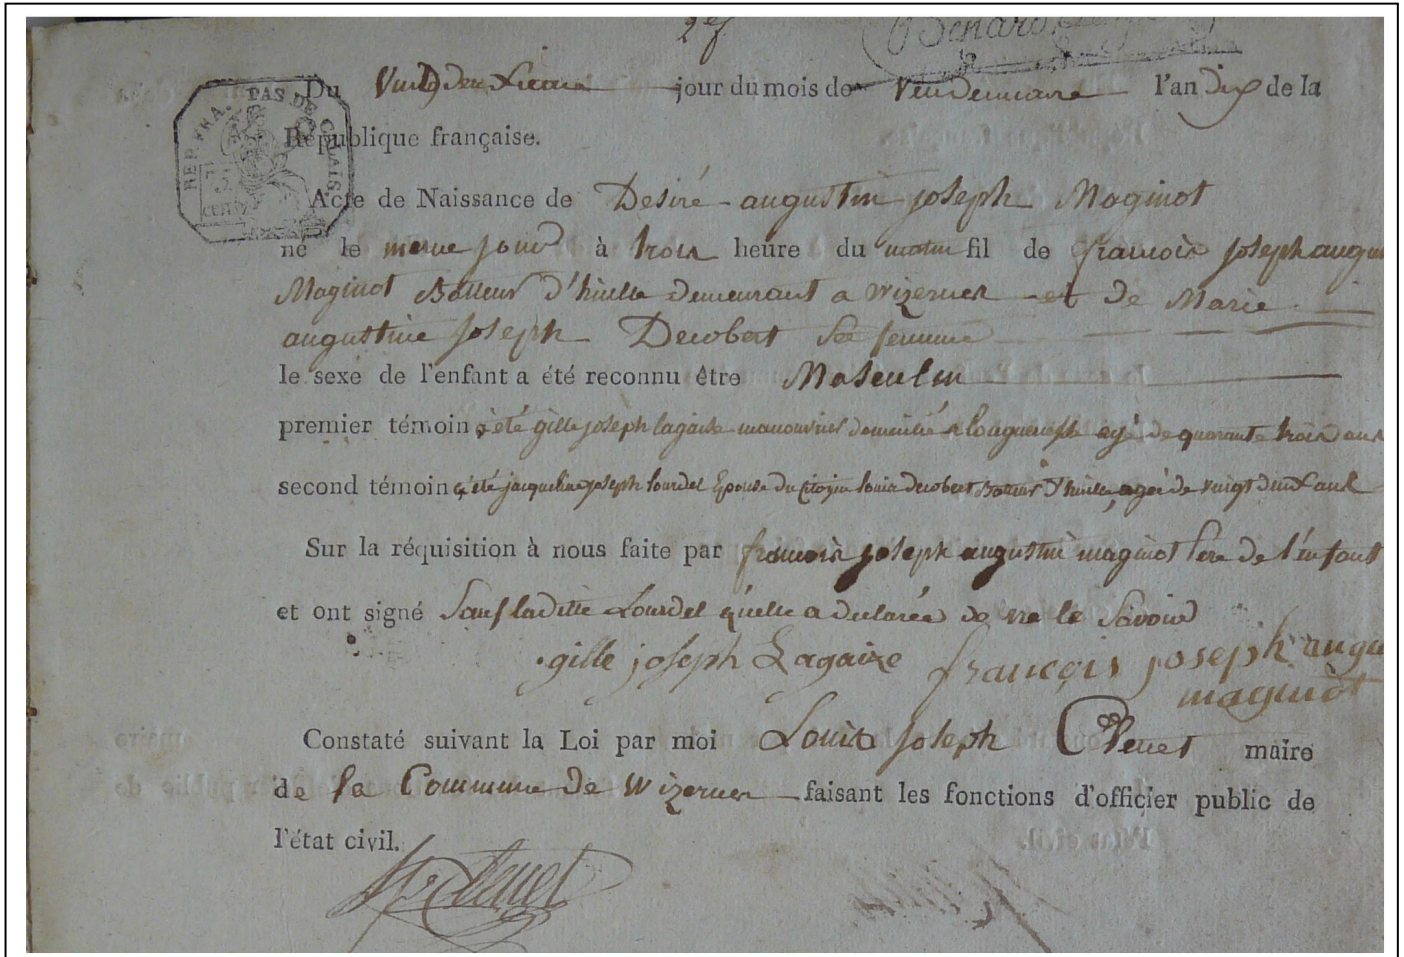 Benard
REP. FRA. PAS DE CALAIS.
75
cent.
Du Vingt deuxieme jour du mois de Vendemiaire l'an dix de la
République française.
Acte de Naissance de Desiré augustin joseph Maginot
né le meme jour à trois heure du matin fil de francois joseph augus
Maginot Batteur d'huille demeurant a wizernes et de Marie
augustine joseph Decobert see femme
le sexe de l'enfant a été reconnu être Masculin
premier témoin à été gille joseph lagaise manouvrier domicilié a longuenesse agé de quarante trois ans
second témoin à été jacqueline joseph lourdel Epouse du citoyen louis decobert Batteur d'huille, agée de vingt deux ans
Sur la réquisition à nous faite par francois joseph augustin maginot Pere de l'enfant
et ont signé Sauf laditte Lourdel qu'elle a declarée de ne le Savoir
gille joseph Lagaize françois joseph augu
maginot
Constaté suivant la Loi par moi Louis joseph Clenet maire
de la Commune de Wizernes faisant les fonctions d'officier public de
l'état civil.